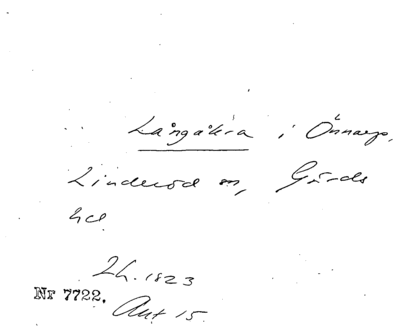 Långåkra i Önnarp,
Linderöd sn, Gärds
hd
Lh. 1823
Nr 7722.
Akt 15.